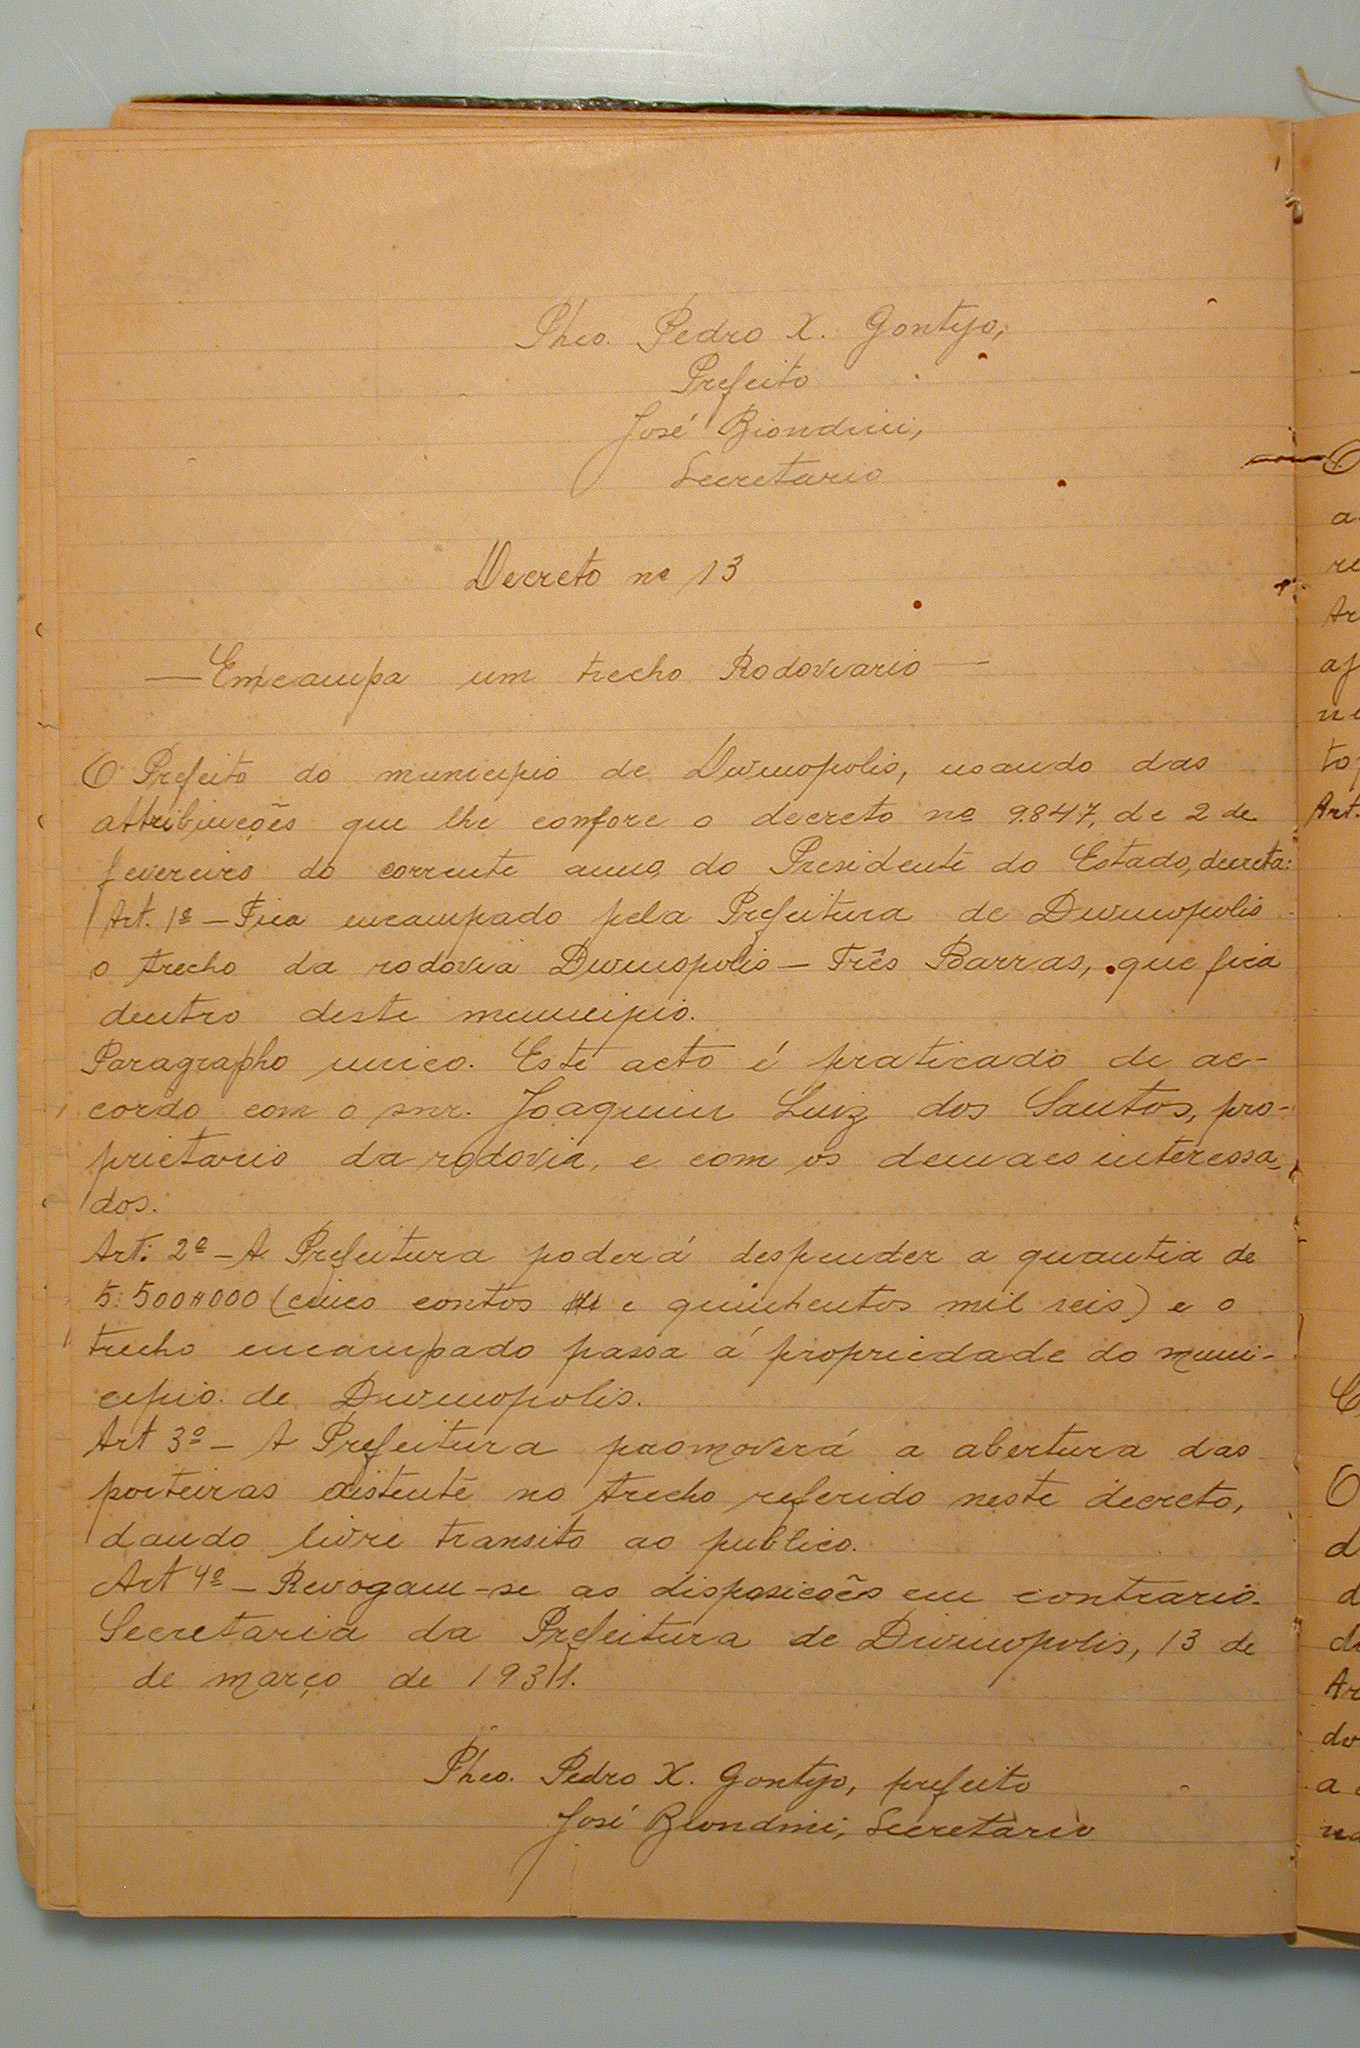 Phco. Pedro X. Gontijo,
Prefeito
José Biondini,
Secretario
Decreto nº 13
— Emcampa um trecho Rodoviario —
O Prefeito do municipio de Divinopolis, usando das
attribuições que lhe confore o decreto nº 9.847, de 2 de
fevereiro do corrente anno, do Presidente do Estado, decreta:
Art. 1º — Fica encampado pela Prefeitura de Divinopolis
o trecho da rodovia Divinopolis — Três Barras, que fica
dentro deste municipio.
Paragrapho unico. Este acto é praticado de ac-
cordo com o snr. Joaquim Luiz dos Santos, pro-
prietario da rodovia, e com os demaes interessa-
dos.
Art: 2º — A Prefeitura poderá despender a quantia de
5:500$000 (cinco contos e quinhentos mil reis) e o
trecho encampado passa á propriedade do muni-
cipio de Divinopolis.
Art 3º — A Prefeitura promoverá a abertura das
porteiras no trecho referido neste decreto,
dando livre transito ao publico.
Art 4º — Revogam-se as disposicões em contrario.
Secretaria da Prefeitura de Divinopolis, 13 de
de março de 1931.
Phco. Pedro X. Gontijo, prefeito
José Biondini, Secretario